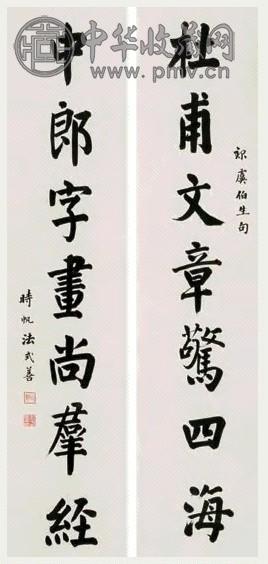 中华收藏网
www.pmv.cn
杜甫文章驚四海
虞伯生句
中郎字畫尚羣經
時帆法式善